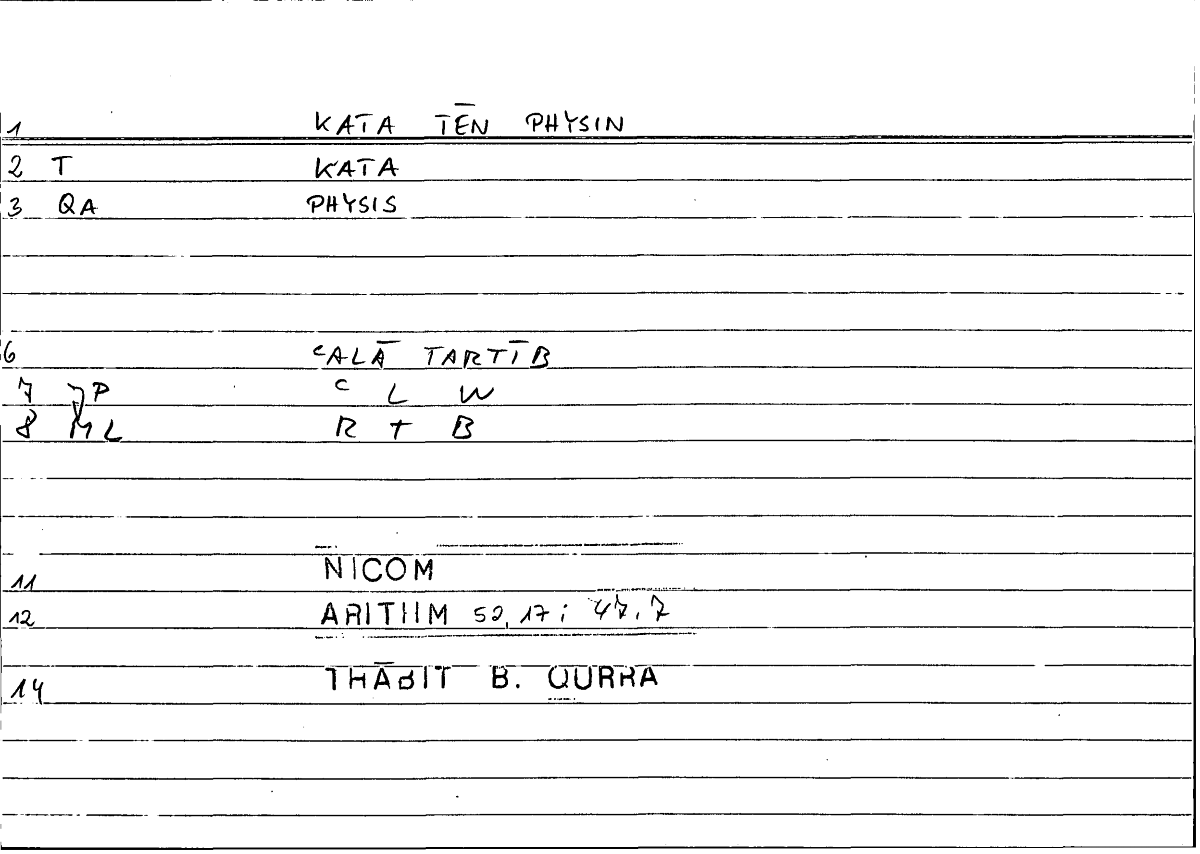 1 KATA TĒN PHYSIN
2 T KATA
3 QA PHYSIS
6 ᶜALĀ TARTĪB
7 JP ᶜ L W
8 ML R T B
11 NICOM
12 ARITHM 52,17; 47,7
14 THĀBIT B. QURRA